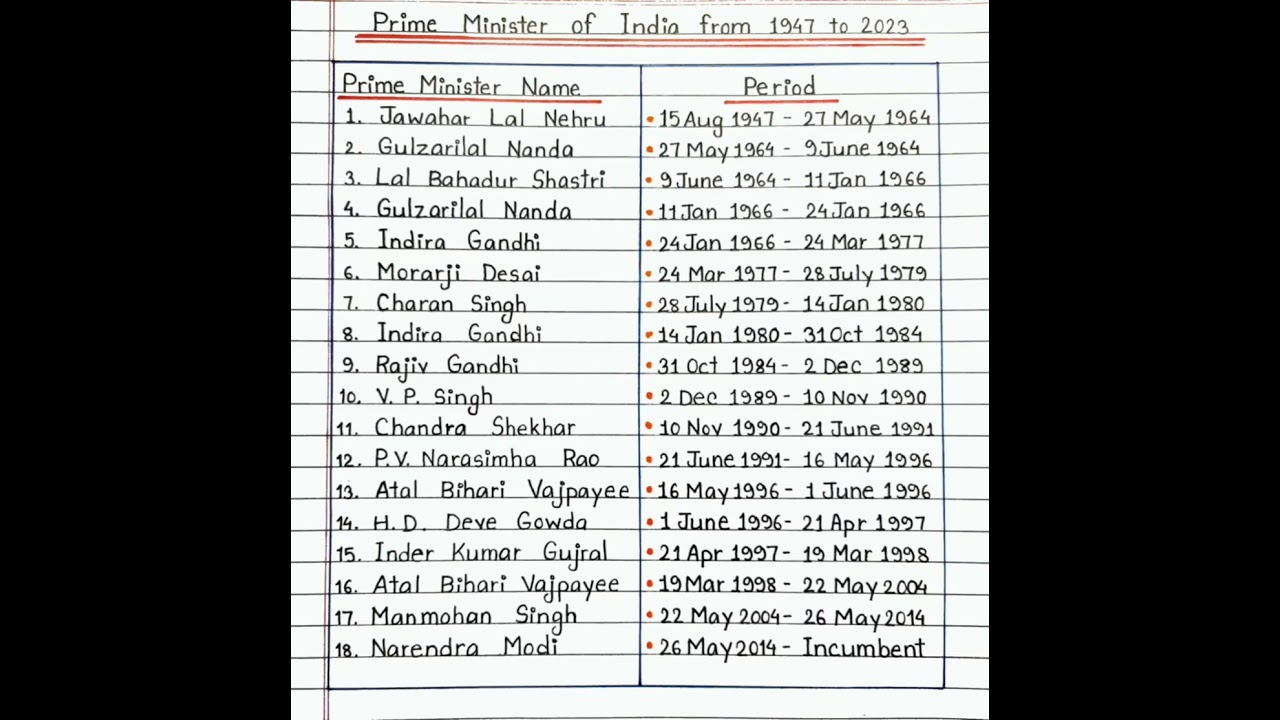 Prime Minister of India from 1947 to 2023
Prime Minister Name Period
1. Jawahar Lal Nehru • 15 Aug 1947 - 27 May 1964
2. Gulzarilal Nanda • 27 May 1964 - 9 June 1964
3. Lal Bahadur Shastri • 9 June 1964 - 11 Jan 1966
4. Gulzarilal Nanda • 11 Jan 1966 - 24 Jan 1966
5. Indira Gandhi • 24 Jan 1966 - 24 Mar 1977
6. Morarji Desai • 24 Mar 1977 - 28 July 1979
7. Charan Singh • 28 July 1979 - 14 Jan 1980
8. Indira Gandhi • 14 Jan 1980 - 31 Oct 1984
9. Rajiv Gandhi • 31 Oct 1984 - 2 Dec 1989
10. V. P. Singh • 2 Dec 1989 - 10 Nov 1990
11. Chandra Shekhar • 10 Nov 1990 - 21 June 1991
12. P.V. Narasimha Rao • 21 June 1991 - 16 May 1996
13. Atal Bihari Vajpayee • 16 May 1996 - 1 June 1996
14. H.D. Deve Gowda • 1 June 1996 - 21 Apr 1997
15. Inder Kumar Gujral • 21 Apr 1997 - 19 Mar 1998
16. Atal Bihari Vajpayee • 19 Mar 1998 - 22 May 2004
17. Manmohan Singh • 22 May 2004 - 26 May 2014
18. Narendra Modi • 26 May 2014 - Incumbent